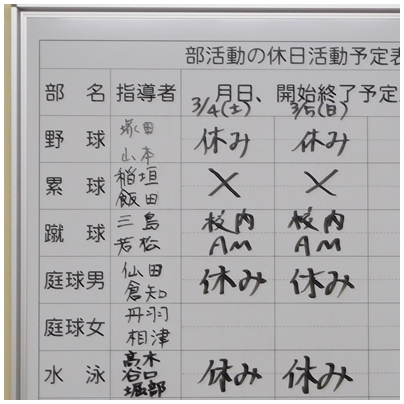 部活動の休日活動予定表
部 名 指導者 月日、開始終了予定
3/4(土) 3/5(日)
野 球 塚田 山本 休み 休み
累 球 稲垣 飯田 × ×
蹴 球 三島 若松 校内 AM 校内 AM
庭球男 仙田 倉知 休み 休み
庭球女 丹羽 相津
水 泳 高木 谷口 堀部 休み 休み